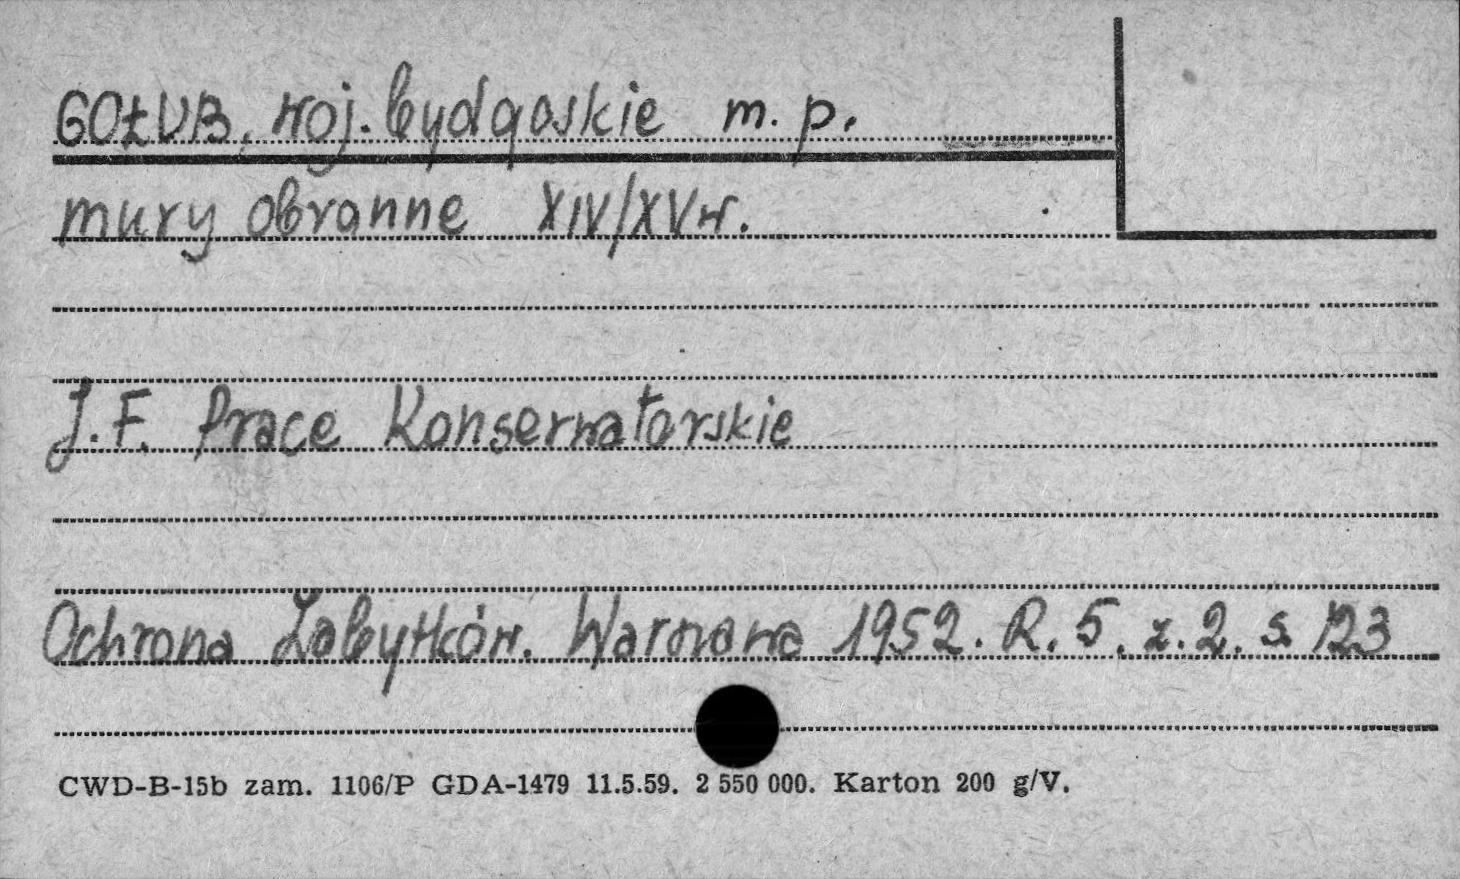 GOŁUB, woj. bydgoskie m. p.
mury obronne XIV/XV w.
J. F. Prace Konserwatorskie
Ochrona Zabytków. Warszawa 1952. R. 5. z. 2. s. 123
CWD-B-15b zam. 1106/P GDA-1479 11.5.59. 2 550 000. Karton 200 g/V.